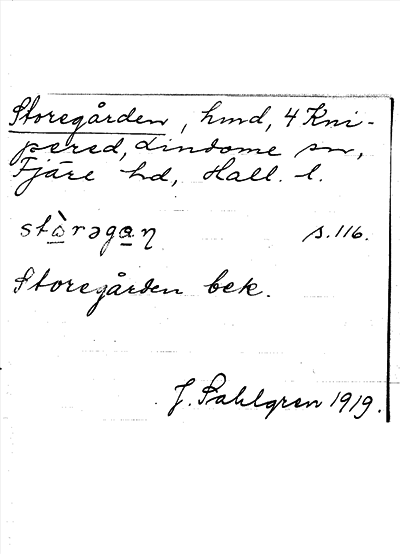 Storegården, hmd, 4 Kni-
pered, Lindome sn,
Fjäre hd, Hall. l.
stò̱rəga̱ŋ s. 116.
Storegården bek.
J. Sahlgren 1919.